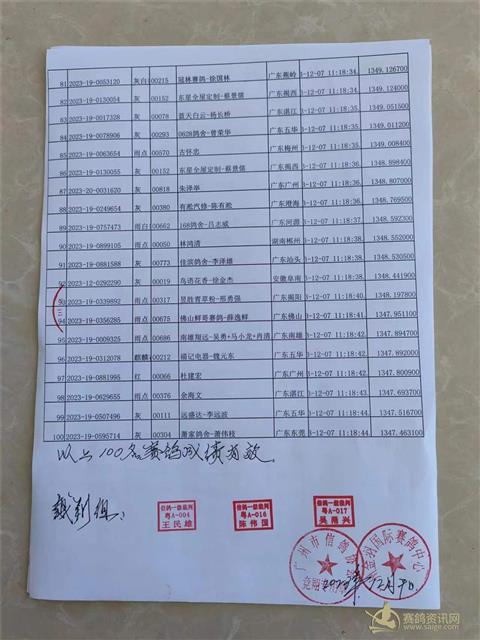 81 2023-19-0053120 灰白 00215 冠林赛鸽-徐国林 广东蕉岭 3-12-07 11:18:34. 1349.126700
82 2023-19-0130054 灰 00152 东星全屋定制-蔡景儒 广东揭西 3-12-07 11:18:34. 1349.124000
83 2023-19-0017328 灰 00078 蓝天白云-杨长桥 广东湛江 3-12-07 11:18:35. 1349.051500
84 2023-19-0078906 灰 00293 0628鸽舍-曾荣华 广东五华 3-12-07 11:18:35. 1349.011200
85 2023-19-0063654 雨点 00570 古怀忠 广东梅州 3-12-07 11:18:35. 1349.008400
86 2023-19-0130055 灰 00152 东星全屋定制-蔡景儒 广东揭西 3-12-07 11:18:36. 1348.898400
87 2023-20-0031620 灰 00818 朱泽举 广东广州 3-12-07 11:18:37. 1348.807000
88 2023-19-0249654 灰 00380 有淞汽修-陈有淞 广东澄海 3-12-07 11:18:37. 1348.769500
89 2023-19-0757473 雨白 00662 168鸽舍-吕志威 广东河源 3-12-07 11:18:39. 1348.592300
90 2023-19-0899105 雨点 00050 林鸿清 湖南郴州 3-12-07 11:18:39. 1348.552200
91 2023-19-0881588 灰 00773 佳滨鸽舍-李泽雄 广东汕头 3-12-07 11:18:39. 1348.530200
92 2023-12-0292290 灰 00019 鸟语花香-徐金杰 安徽阜南 3-12-07 11:18:40. 1348.441900
93 2023-19-0339892 雨点 00317 昱胜青草粉-邢勇强 广东揭阳 3-12-07 11:18:40. 1348.197800
94 2023-19-0356285 雨点 00675 佛山鲜哥赛鸽-薛逸鲜 广东佛山 3-12-07 11:18:42. 1347.951100
95 2023-19-0009325 雨点 00086 南雄翔远-吴勇+马小龙+肖清 广东南雄 3-12-07 11:18:44. 1347.892900
96 2023-19-0312078 麒麟 00212 福记电器-魏元东 广东五华 3-12-07 11:18:44. 1347.890200
97 2023-19-0881995 红 00066 杜建宏 广东广州 3-12-07 11:18:44. 1347.809000
98 2023-19-0629655 灰 00376 余海文 广东湛江 3-12-07 11:18:45. 1347.693700
99 2023-19-0507496 灰 00111 远盛达-李远波 广东广州 3-12-07 11:18:47. 1347.516700
100 2023-19-0595714 灰 00304 萧家鸽舍-萧伟枝 广东东莞 3-12-07 11:18:47. 1347.463100
以上100名赛鸽成绩有效。
裁判组:
信鸽一级裁判
粤A-004
王民雄
信鸽一级裁判
粤A-016
陈伟国
信鸽一级裁判
粤A-017
广州市信鸽协会
国际赛鸽中心
赛鸽资讯网
www.saige.com